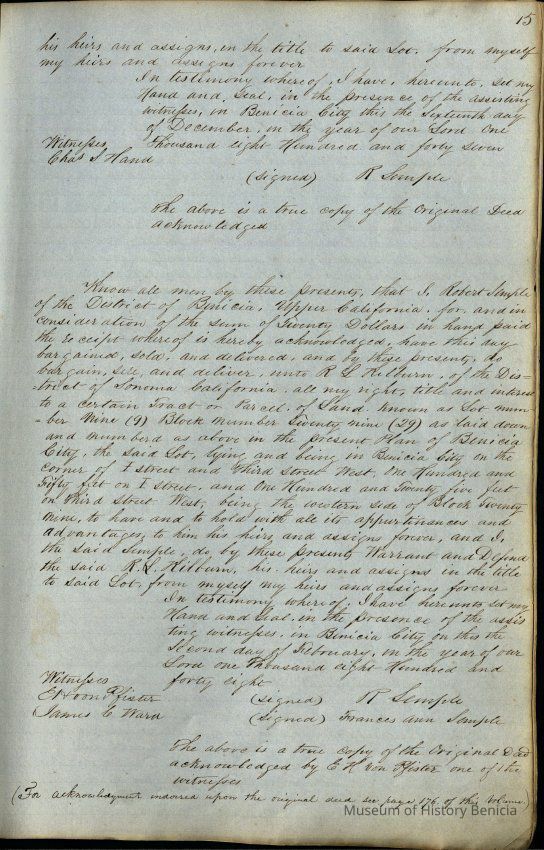 15
his heirs and assigns, in the title to said Lot, from myself
my heirs and assigns forever
In testimony whereof, I have, hereunto, set my
Hand and Seal, in the presence of the assisting
witness, in Benicia City this the Sixteenth day
of December, in the year of our Lord One
Witnesses Thousand eight Hundred and forty seven
Chas S Hand
(signed) R Semple
The above is a true copy of the Original Deed
acknowledged
Know all men by these presents, that I, Robert Semple
of the District of Benicia, Upper California, for, and in
consideration of the sum of Twenty Dollars in hand paid
the receipt whereof is hereby acknowledged, have this day
bargained, sold, and delivered, and by these present, do
bargain, sell, and deliver, unto R L Kilburn, of the Dis=
-trict of Sonoma California, all my right, title and interest
to a certain Tract or Parcel, of Land, known as Lot num-
-ber Nine (9) Block number Twenty nine (29) as laid down
and numberd as above in the present Plan of Benicia
City, the said Lot, lying and being in Benicia City on the
corner of I street and Third Street West, One Hundred and
Fifty feet on I Street, and One Hundred and Twenty five feet
on Third Street West, being the western side of Block Twenty
Nine, to have and to hold with all its appurtinances and
advantages to him his heirs and assigns forever, and I,
the said Semple, do, by these presents Warrant and Defend
the said R. L. Kilburn, his heirs and assigns in the title
to said Lot, from myself my heirs and assigns forever
In testimony whereof, I have hereunto set my
Hand and Seal, in the presence of the assis
ting witnesses, in Benicia City on this the
Second day of February, in the year of our
Lord one Thousand eight Hundred and
Witnesses forty eight
E H von Pfister (signed) R Semple
James C Ward (signed) Frances Ann Semple
The above is a true copy of the Original Deed
acknowledged by E H von Pfister one of the
witnesses
(For acknowledgment indorsed upon the original deed see page 176 of this Volume)
Museum of History Benicia